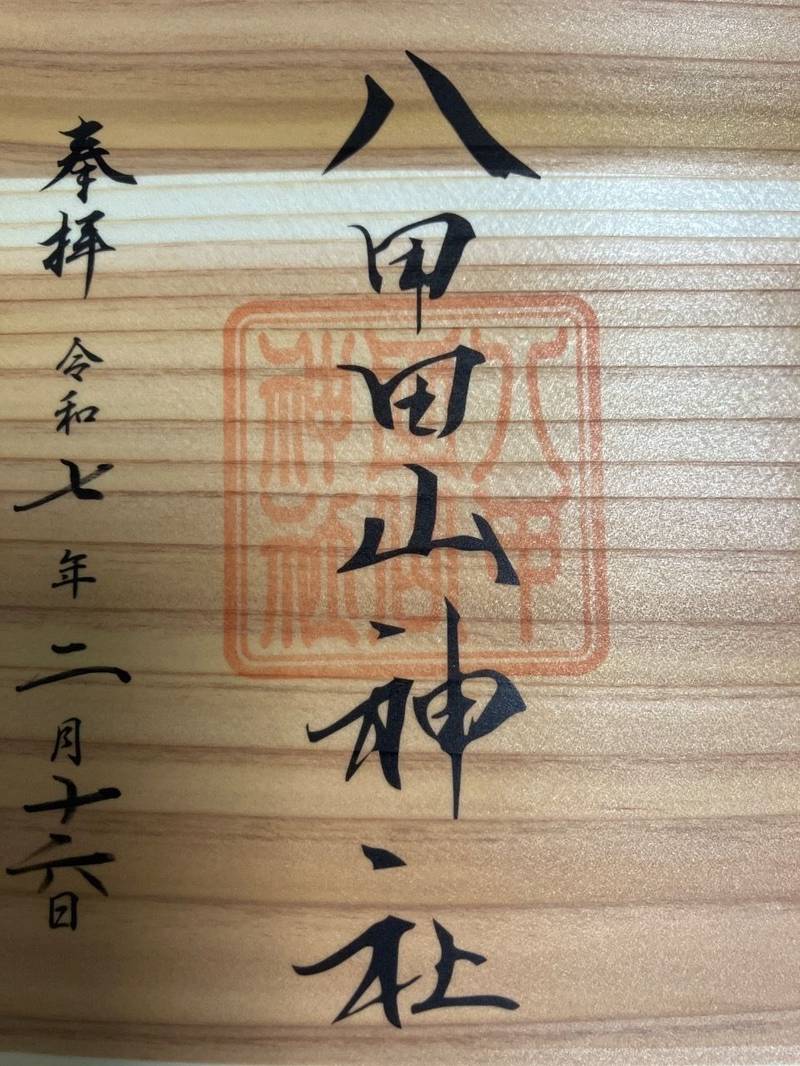 八甲田山神社
八甲田山神社
奉拝 令和七年二月十六日